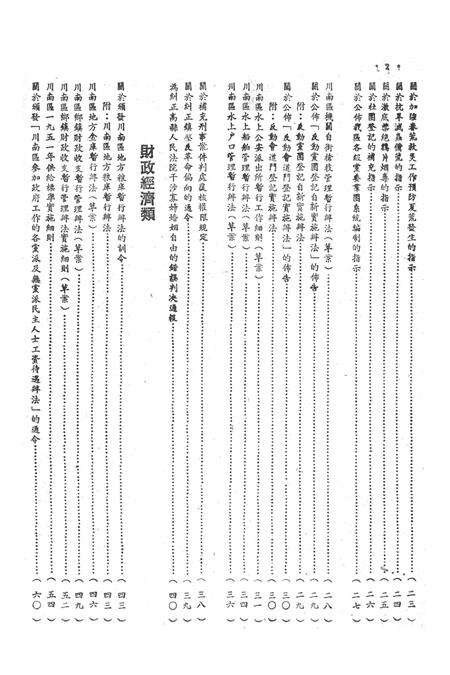 · 2 ·
關於加強春荒救災工作預防夏荒發生的指示……(二三)
關於抗旱滅蟲備荒的指示……(二四)
關於澈底禁絕鴉片烟毒的指示……(二五)
關於社團登記的補充指示……(二六)
關於公佈我區各級黨委黨團系統編制的指示……(二七)
川南區機關自衛槍枝管理暫行辦法(草案)……(二八)
關於公佈「反動黨團登記自新實施辦法」的佈告……(二九)
附:反動黨團登記自新實施辦法……(二九)
關於公佈「反動會道門登記實施辦法」的佈告……(三〇)
附:反動會道門登記實施辦法……(三〇)
川南區水上公安派出所暫行工作細則(草案)……(三一)
川南區水上船舶管理暫行辦法(草案)……(三四)
川南區水上户口管理暫行辦法(草案)……(三六)
關於補充刑事案件判處度核權限規定……(三八)
關於糾正鎮壓反革命偏向的通令……(三九)
為糾正高縣人民法院干涉寡婦婚姻自由的錯誤判決通報……(四〇)
財政經濟類
關於頒發川南區地方粮庫暫行辦法的訓令……(四三)
附:川南區地方粮庫暫行辦法……(四三)
川南區地方金庫暫行辦法(草案)……(四六)
川南區鄉鎮財政收支暫行管理辦法(草案)……(四九)
川南區鄉鎮財政收支暫行管理辦法實施細則(草案)……(五二)
川南區一九五一年供給標準實施細則……(五四)
關於頒發「川南區參加政府工作的各黨派及無黨派民主人士工資待遇辦法」的通令……(六〇)